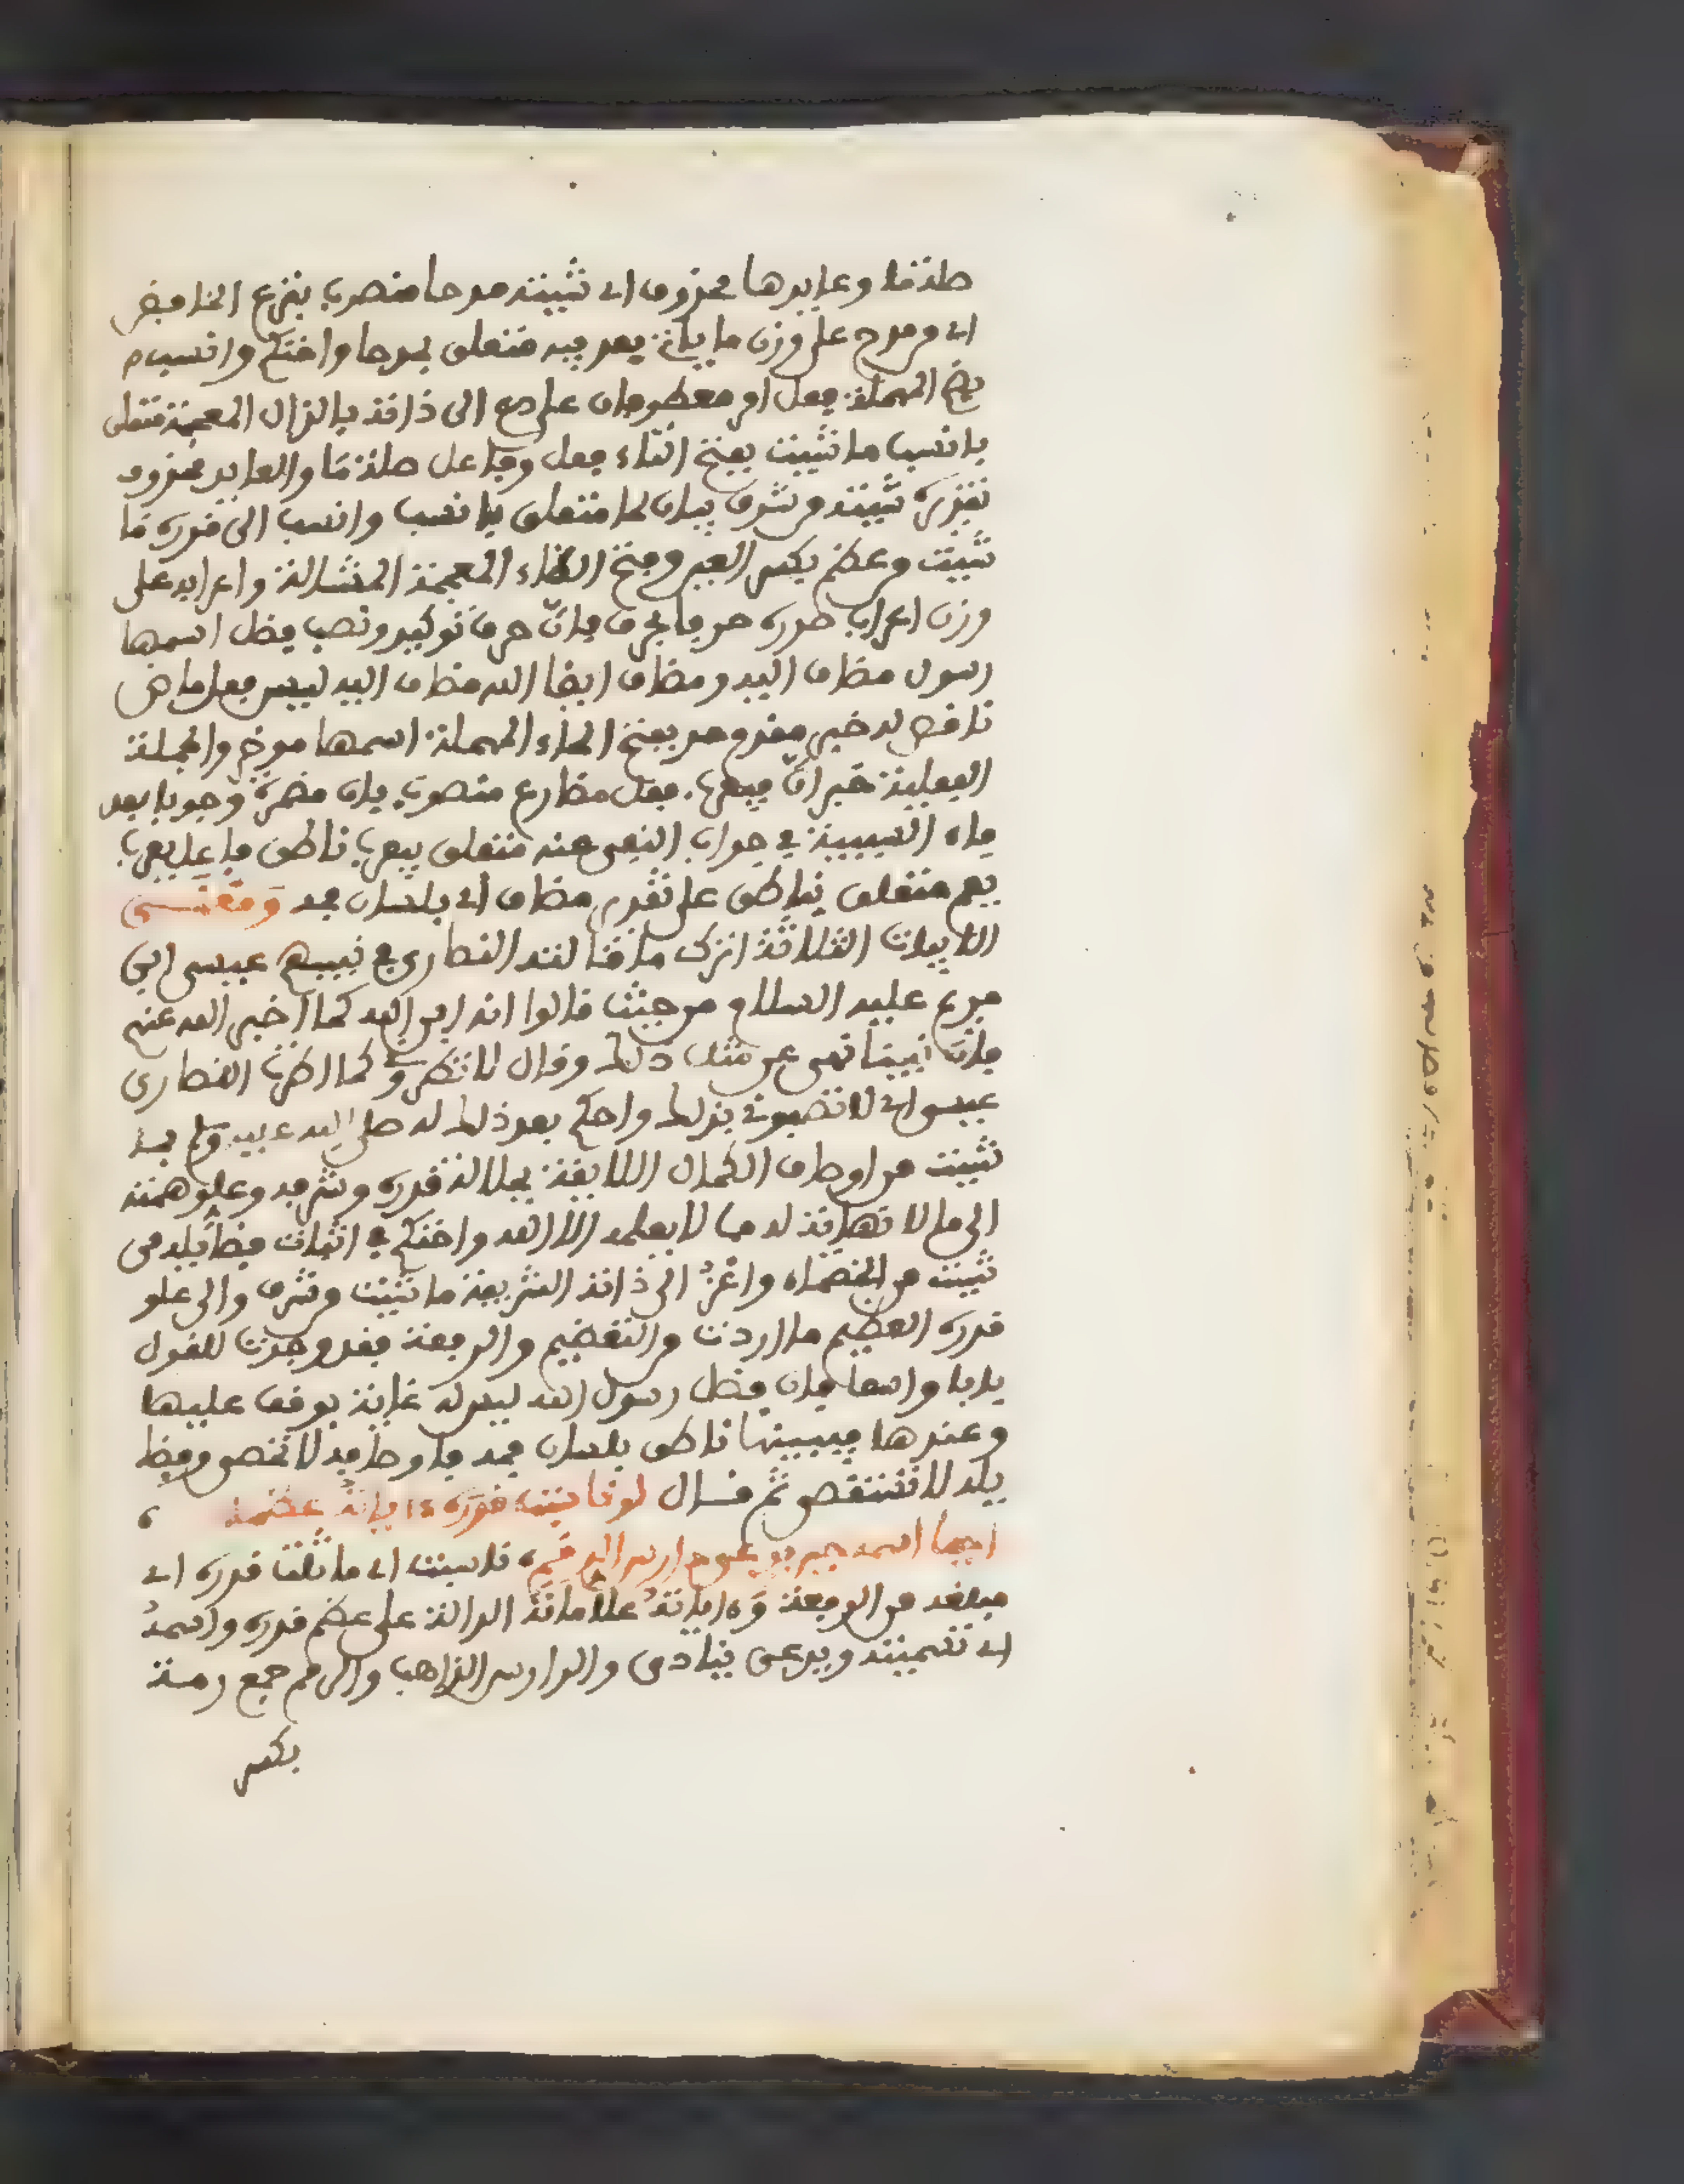 صلة ما وعايدها محذوف اي شيته مدحا منصوب بنزع الخافض
اي من مدح على وزن ما ياتي بعد فيه متعلق بمدحا واحتكم وانسب م
بضم المهملة فعل امر معطوفان على دع الى ذاته بالذال المعجمة متعلق
بانسب ما شيت بفتح التاء فعل وفاعل صلة ما والعايد محذوف
تقديره شيته من شرف بيان لما متعلق بانسب وانسب الى قدره ما
شيت من عظم بكسر العين وفتح الظاء المعجمة المشالة واعرابه على
وزن اعراب صدره حرفا بحرف فان حرف توكيد ونصب فضل اسمها
رسول مضاف اليه ومضاف ايضا الله مضاف اليه ليس فعل ماض
ناقص له خبر مقدم حد بفتح الحاء المهملة اسمها موخر والجملة
الفعلية خبر ان فيعرب فعل مضارع منصوب بان مضمرة وجوبا بعد
فاء السببية في جواب النفي عنه متعلق بيعرب ناطق فاعل يعرب
بفم متعلق بناطق على تقدير مضاف اي بلسان فمه ومعنى
الابيات الثلاثة اترك ما قالته النصارى في نبيهم عيسى ابن
مريم عليه السلام من حيث قالوا انه ابن الله كما اخبر الله عنهم
فان نبينا نهى عن مثل ذلك وقال لا تطروني كما اطرت النصارى
عيسى اي لا تصفوني بذلك واحكم بعد ذلك له صلى الله عليه وسلم بما
شيت من اوصاف الكمال اللايقة بجلالة قدره وشرفه وعلو همته
الى ما لا نهاية له مما لا يعلمه الا الله واحتكم في اثبات فضايله من
شيت من الخصماء واعز الى ذاته الشريفة ما شيت من شرف والى علو
قدره العظيم ما اردت من التعظيم والرفعة فقد وجدت للقول
بابا واسعا فان فضل رسول الله ليس له غاية يوقف عليها
وعندها فيبينها ناطق بلسان فمه فاوصافه لا تحصى وفضا
يله لا تستقصى ثم قال لو ناسبت قدره ءاياته عظما
احيا اسمه حين يدعى دارس الرمم ناسبت اي ماثلت قدره اي
مبلغه من الرفعة وءاياته علاماته الدالة على عظم قدره واسمه
اي تسميته ويدعى ينادى والدارس الذاهب والرمم جمع رمة
بكسر